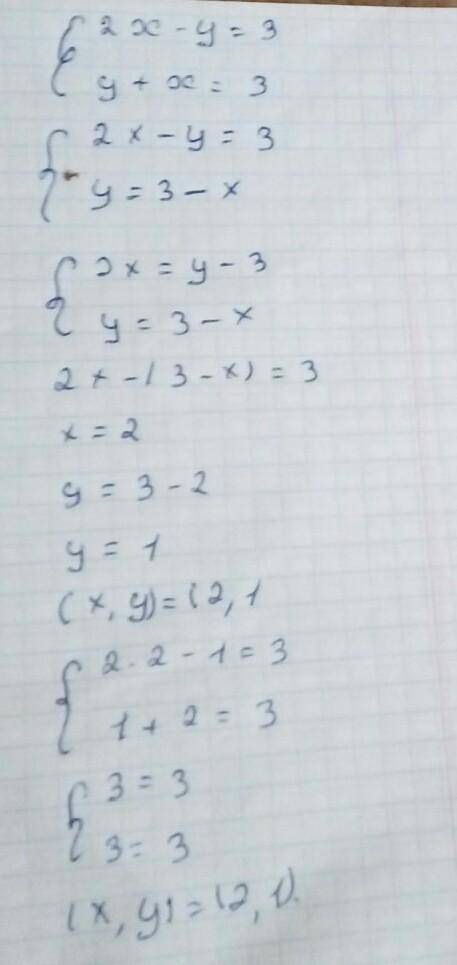 2x - y = 3
y + x = 3
2x - y = 3
y = 3 - x
2x = y - 3
y = 3 - x
2x - (3 - x) = 3
x = 2
y = 3 - 2
y = 1
(x, y) = (2, 1
2 · 2 - 1 = 3
1 + 2 = 3
3 = 3
3 = 3
(x, y) = (2, 1).